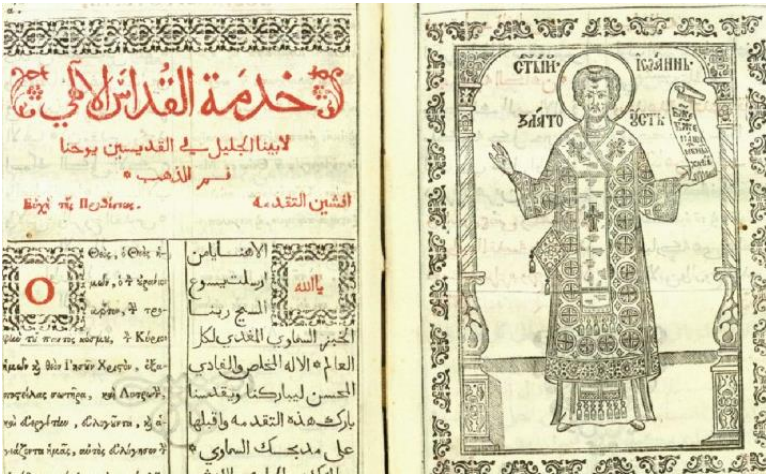 خدمة القداس الالاهي
لابينا الجليل في القديسين يوحنا
فم الذهب *
افشين التقدمه
Εὐχὴ τῆς Προθέσεως.
ياالله
الاهنا يامن
ارسلت يسوع
المسيح ربنا
الخبز السماوي المغدي لكل
العالم * الاله المخلص والفادي
المحسن ليباركنا ويقدسنا
بارك هذه التقدمه واقبلها
على مدبحك السماوي *
Ο Θεός, ὁ Θεὸς ἡ-
μῶν, ὁ τ̀ οὐράνιον
ἄρτον, τ̀ τρο-
φὴν τοῦ παντὸς κόσμου, τ̀ Κύριον
ἡμῶν ϗ θεὸν Ἰησοῦν Χριστὸν, ἐξα-
ποστείλας σωτῆρα, καὶ Λυτρωτὴν,
καὶ εὐεργέτην, εὐλογοῦντα, ϗ ἁ-
γιάζοντα ἡμᾶς, αὐτὸς εὐλόγησον τ̀
СТЫИ ІѠАННЬ
ЗЛАТО ꙊСТЬ